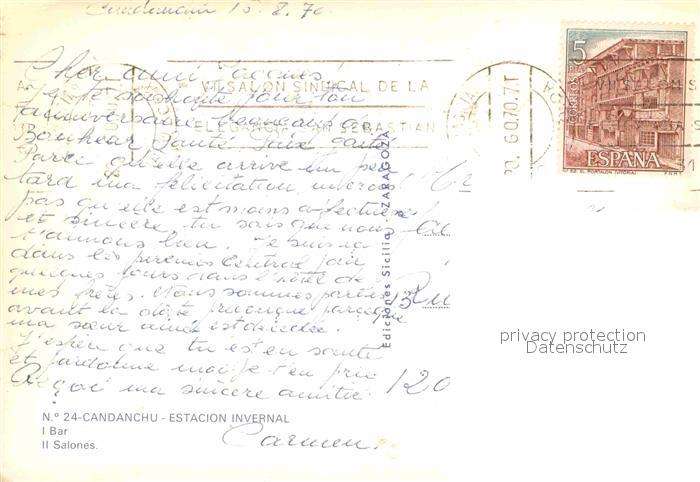 15.8.70
Cher ami Jacques
je te souhaite pour ton
anniversaire beaucoup de
Bonheur Santé Joie
Parce qu'elle arrive un peu
tard ma félicitation,
pas qu'elle est moins affectueuse
et sincère, tu sais que nous
t'aimons bien. Je suis ici
dans les pirenées Central pour
quelques jours dans l'hôtel de
mes frères. Nous sommes partis
avant la date parceque
ma sœur ainée est décédée.
J'espère que tu est en santé
et pardonne moi je t'en prie
Reçoi ma sincère amitié
Carmen.
VII SALON SINDICAL DE LA
ELEGANCIA SAN SEBASTIAN
5
CORREOS
ESPAÑA
Ediciones Sicilia - ZARAGOZA
Ru
120
privacy protection
Datenschutz
N.º 24-CANDANCHU - ESTACION INVERNAL
I Bar
II Salones.